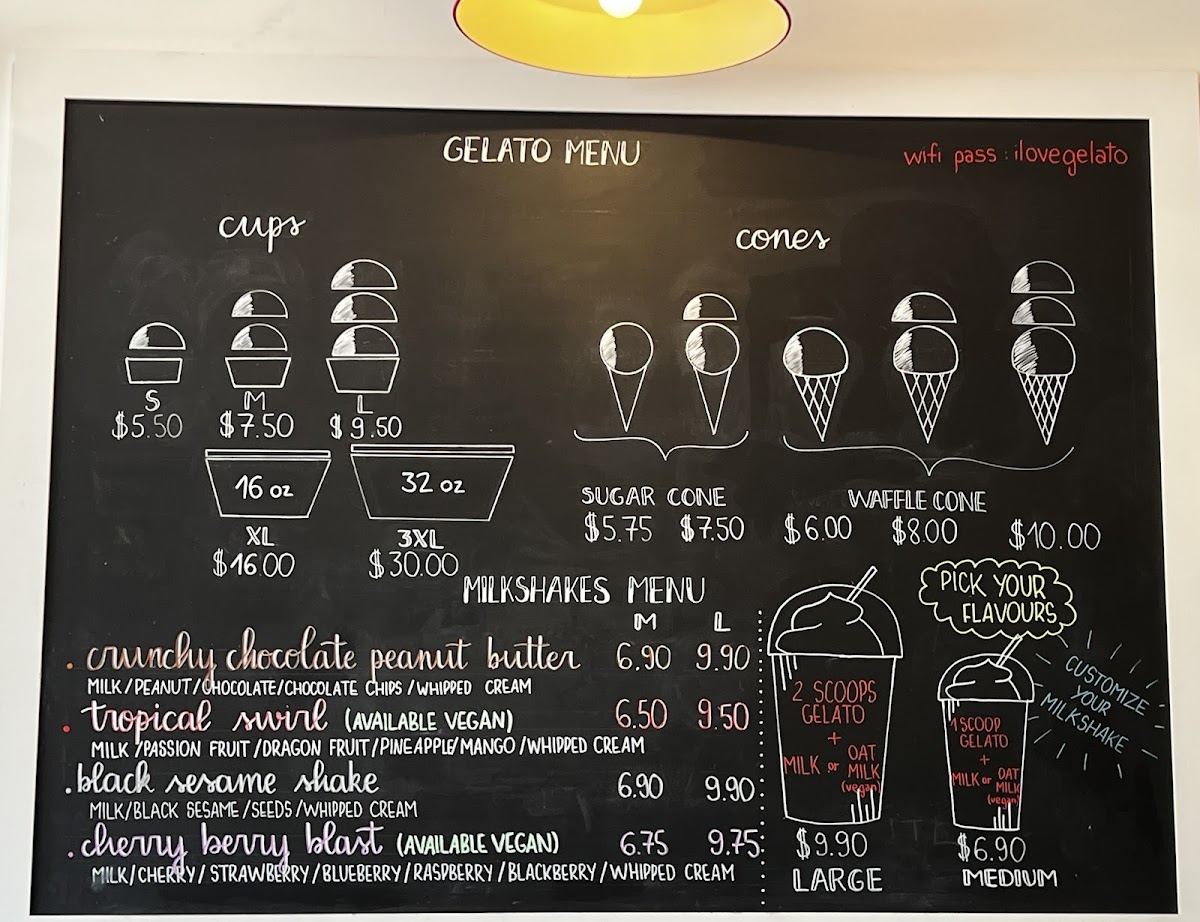 GELATO MENU
wifi pass : ilovegelato
cups
S M L
$5.50 $7.50 $9.50
16 oz 32 oz
XL 3XL
$16.00 $30.00
cones
SUGAR CONE
$5.75 $7.50
WAFFLE CONE
$6.00 $8.00 $10.00
MILKSHAKES MENU
M L
. crunchy chocolate peanut butter 6.90 9.90
MILK/PEANUT/CHOCOLATE/CHOCOLATE CHIPS/WHIPPED CREAM
. tropical swirl (AVAILABLE VEGAN) 6.50 9.50
MILK/PASSION FRUIT/DRAGON FRUIT/PINEAPPLE/MANGO/WHIPPED CREAM
. black sesame shake 6.90 9.90
MILK/BLACK SESAME/SEEDS/WHIPPED CREAM
. cherry berry blast (AVAILABLE VEGAN) 6.75 9.75
MILK/CHERRY/STRAWBERRY/BLUEBERRY/RASPBERRY/BLACKBERRY/WHIPPED CREAM
2 SCOOPS
GELATO
+
MILK or OAT
MILK
(vegan)
$9.90
LARGE
PICK YOUR
FLAVOURS
CUSTOMIZE
YOUR
MILKSHAKE
1 SCOOP
GELATO
+
MILK or OAT
MILK
(vegan)
$6.90
MEDIUM